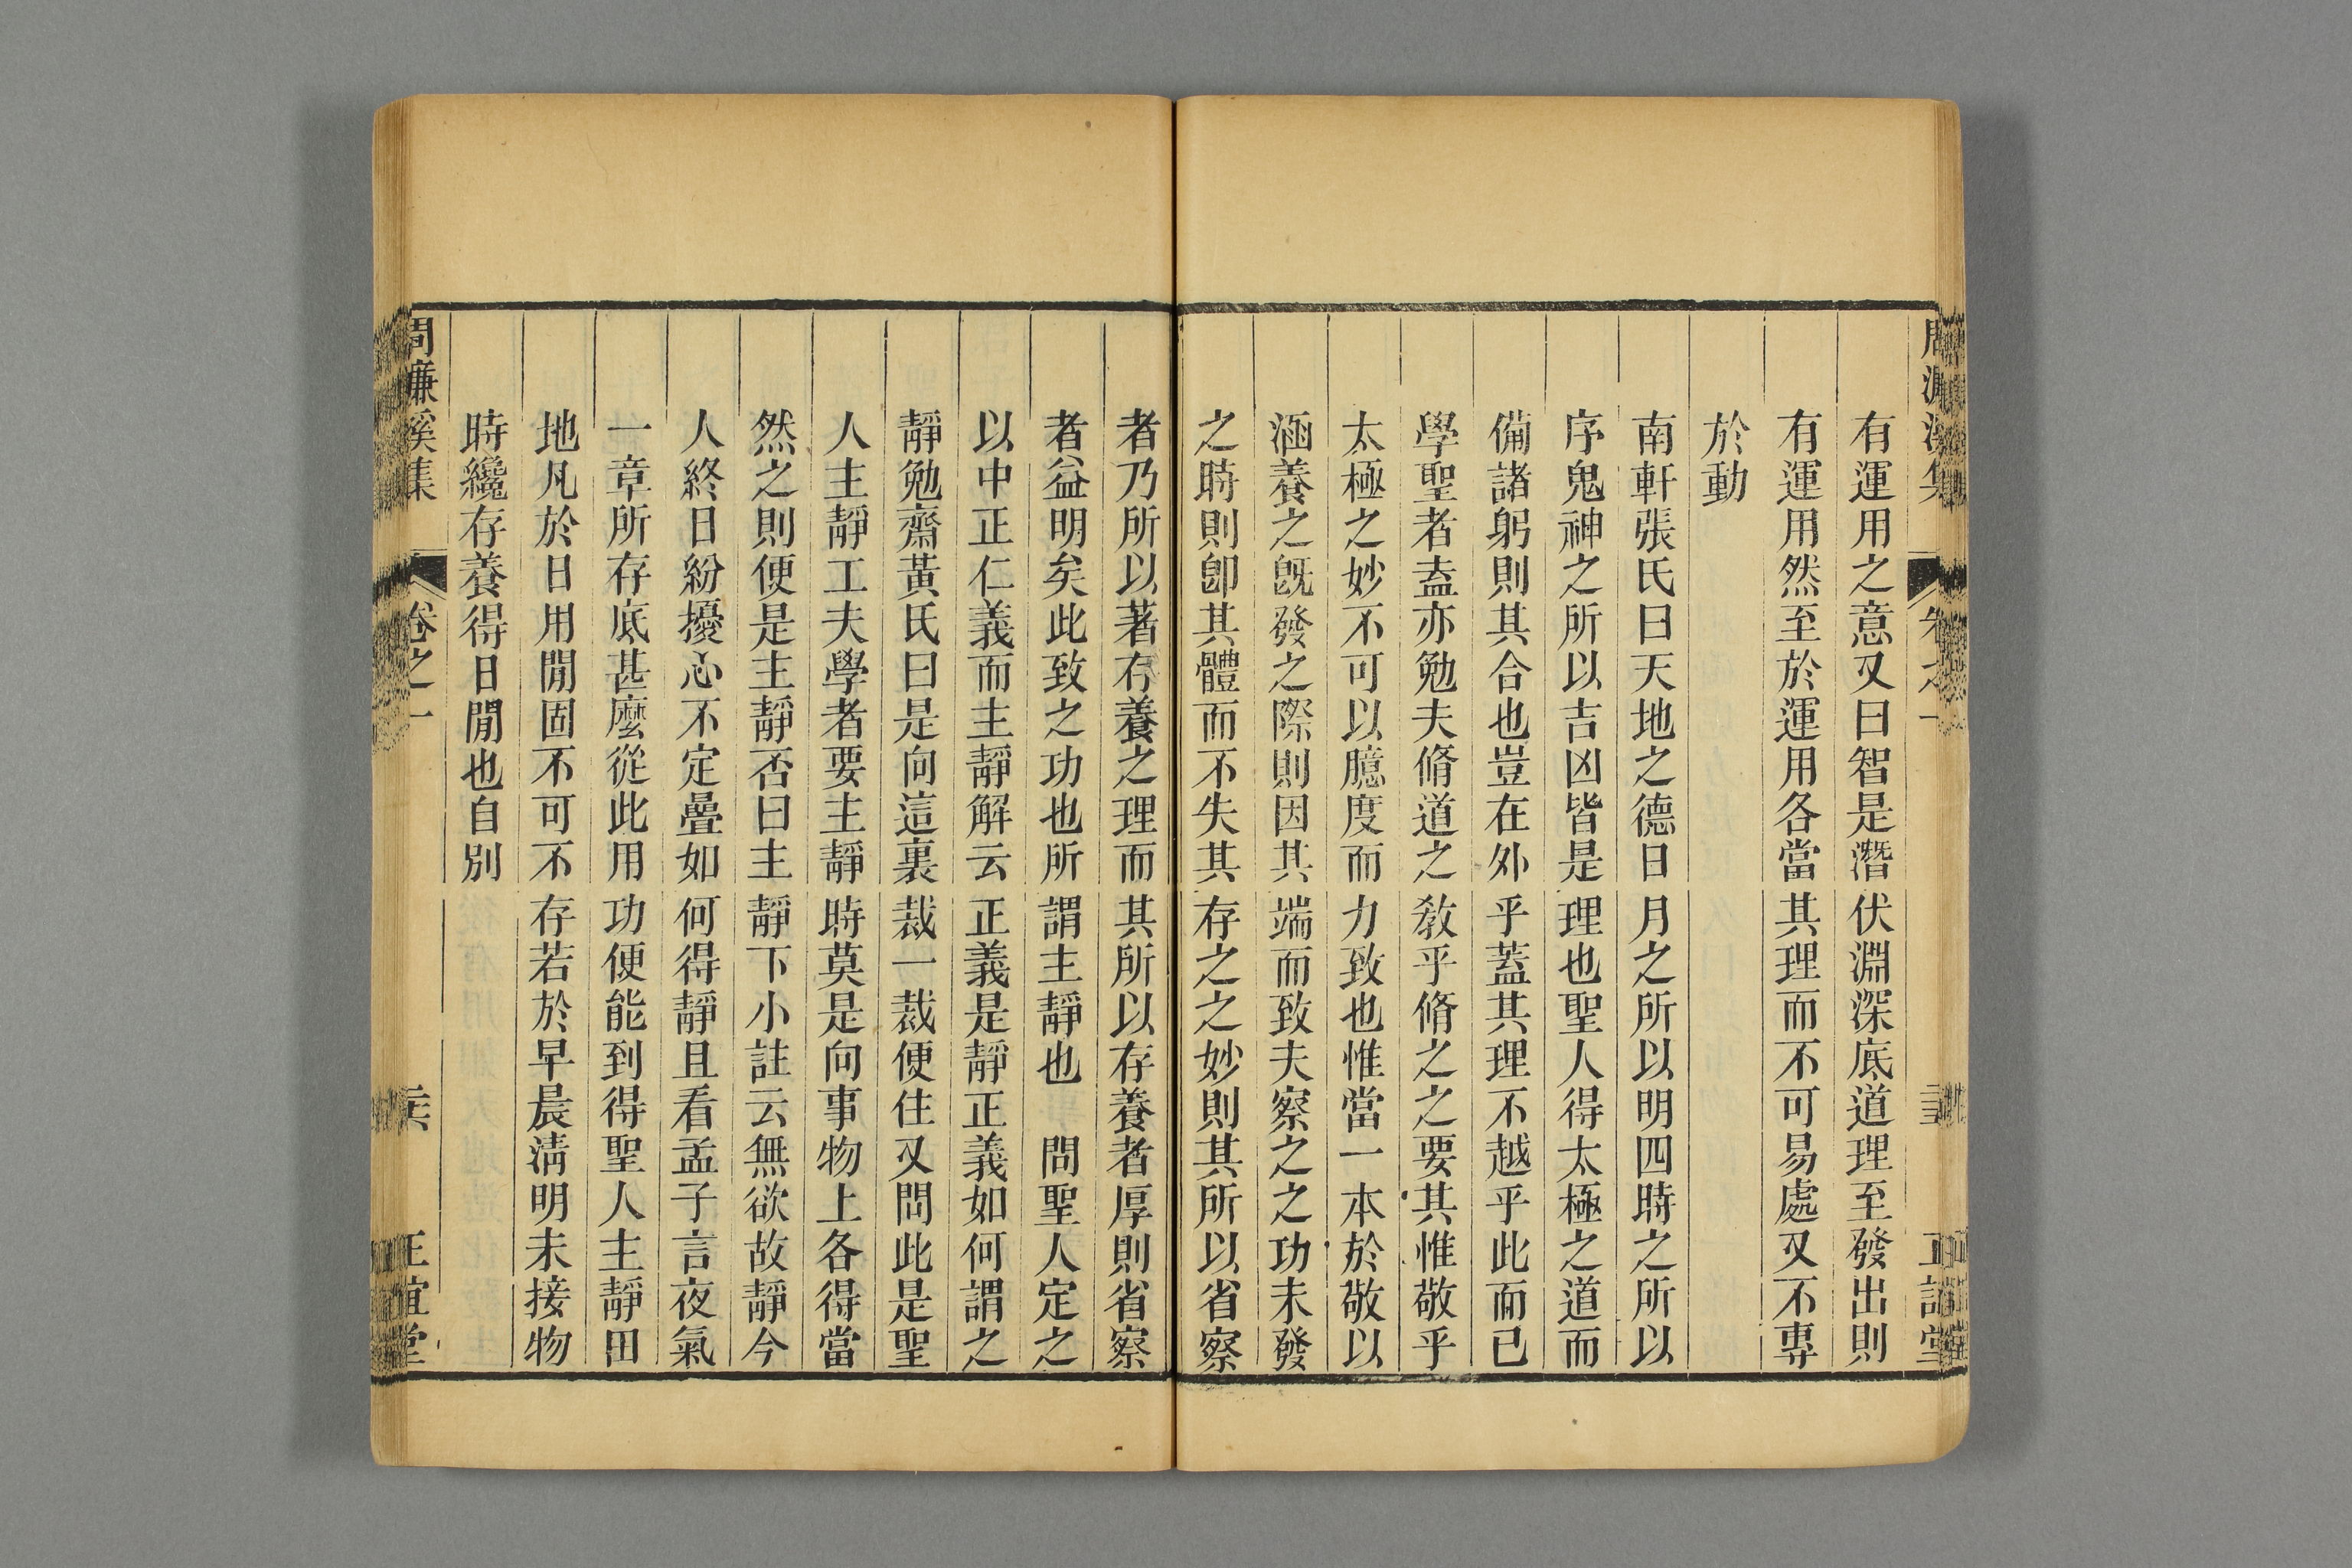 有運用之意又曰智是潛伏淵深底道理至發出則
有運用然至於運用各當其理而不可易處又不專
於動
南軒張氏曰天地之德日月之所以明四時之所以
序鬼神之所以吉凶皆是理也聖人得太極之道而
備諸躬則其合也豈在外乎蓋其理不越乎此而已
學聖者盍亦勉夫脩道之教乎脩之之要其惟敬乎
太極之妙不可以臆度而力致也惟當一本於敬以
涵養之旣發之際則因其端而致夫察之之功未發
之時則卽其體而不失其存之之妙則其所以省察
者乃所以著存養之理而其所以存養者厚則省察
者益明矣此致之功也所謂主靜也　問聖人定之
以中正仁義而主靜解云正義是靜正義如何謂之
靜勉齋黃氏曰是向這裏裁一裁便住又問此是聖
人主靜工夫學者要主靜時莫是向事物上各得當
然之則便是主靜否曰主靜下小註云無欲故靜今
人終日紛擾心不定疊如何得靜且看孟子言夜氣
一章所存底甚麼從此用功便能到得聖人主靜田
地凡於日用閒固不可不存若於早晨淸明未接物
時纔存養得日閒也自別
周濂溪集
卷之一
正誼堂